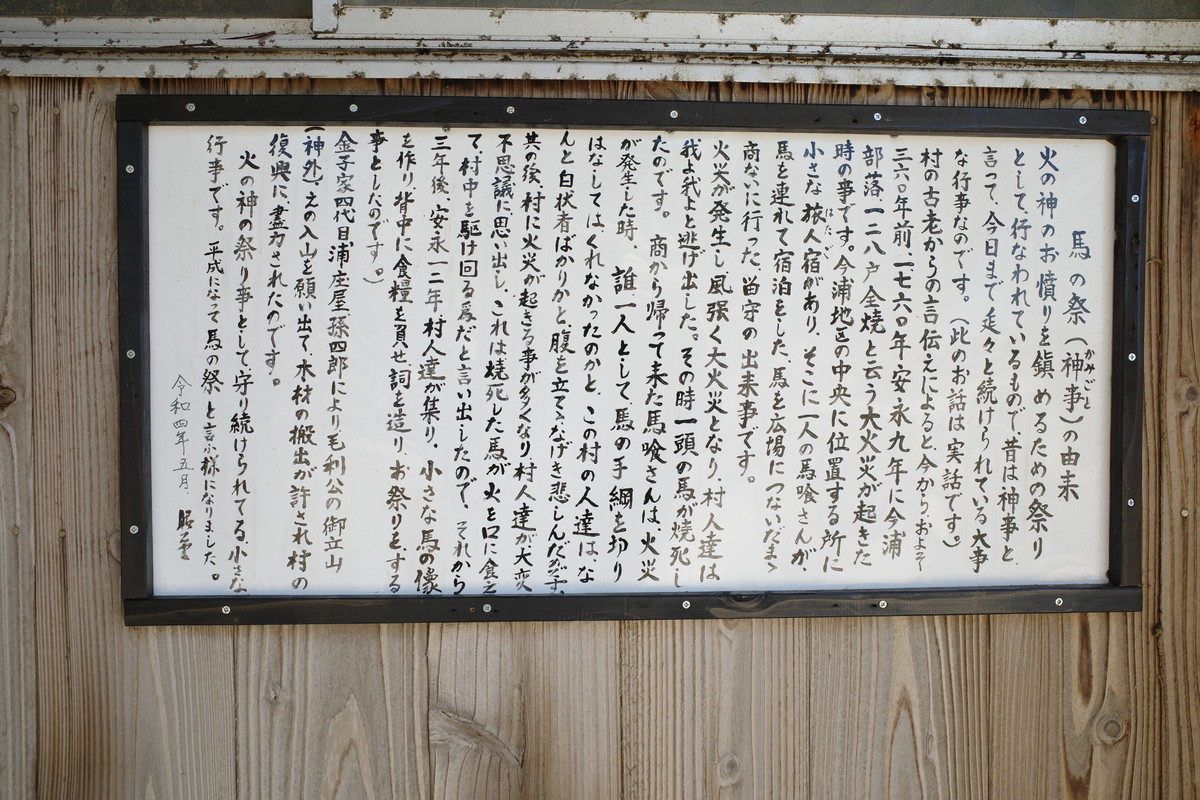 馬の祭(神事)の由来
かみごと
火の神のお憤りを鎮めるための祭り
として行なわれているもので、昔は神事と
言って、今日まで延々と続けられている大事
な行事なのです。(此のお話は実話です。)
村の古老からの言伝えによると今から、およそ
二六〇年前、一七六〇年安永九年に今浦
部落一二八戸全焼と云う大火災が起きた
時の事です。今浦地区の中央に位置する所に
小さな旅人宿があり、そこに一人の馬喰さんが、
はたご
馬を連れて宿泊をした、馬を広場につないだまゝ
商ないに行った、留守の出来事です。
火災が発生し風强く大火災となり、村人達は
我よ我よと逃げ出した。その時一頭の馬が焼死し
たのです。商から帰って来た馬喰さんは、火災
が発生した時、誰一人として、馬の手綱を切り
はなしてはくれなかったのかと、この村の人達は、な
んと白状者ばかりかと、腹を立てゝなげき悲しんだそうです、
其の後、村に火災が起きる事が多くなり村人達が大変
不思議に思い出し、これは焼死した馬が火を口に食え
て、村中を駆け回る為だと言い出したので、それから
三年後、安永一二年村人達が集り、小さな馬の像
を作り、背中に食糧を負せ、詞を造り、お祭りをする
事としたのです。)
金子家四代目浦庄屋孫四郎により毛利公の御立山
(神外)之の入山を願い出て、木材の搬出が許され村の
復興に、盡力されたのです。
火の神の祭り事として守り続けられてる、小さな
行事です。平成になって馬の祭と言ふ様になりました。
令和四年五月